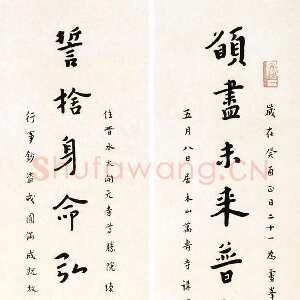 歲在癸酉正月二十一為雪峯
願盡未来普
五月八日居本山萬壽寺講
住晉水大開元寺尊勝院續
誓捨身命弘
行事鈔盗戒圓滿成就敬
Shufawang.CN